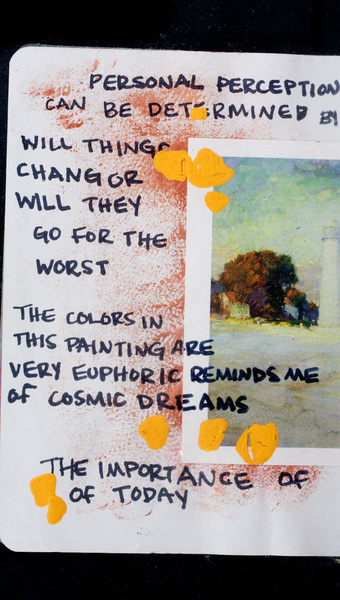 PERSONAL PERCEPTION
CAN BE DETERMINED BY
WILL THINGS
CHANG OR
WILL THEY
GO FOR THE
WORST
THE COLORS IN
THIS PAINTING ARE
VERY EUPHORIC REMINDS ME
OF COSMIC DREAMS
THE IMPORTANCE OF
OF TODAY